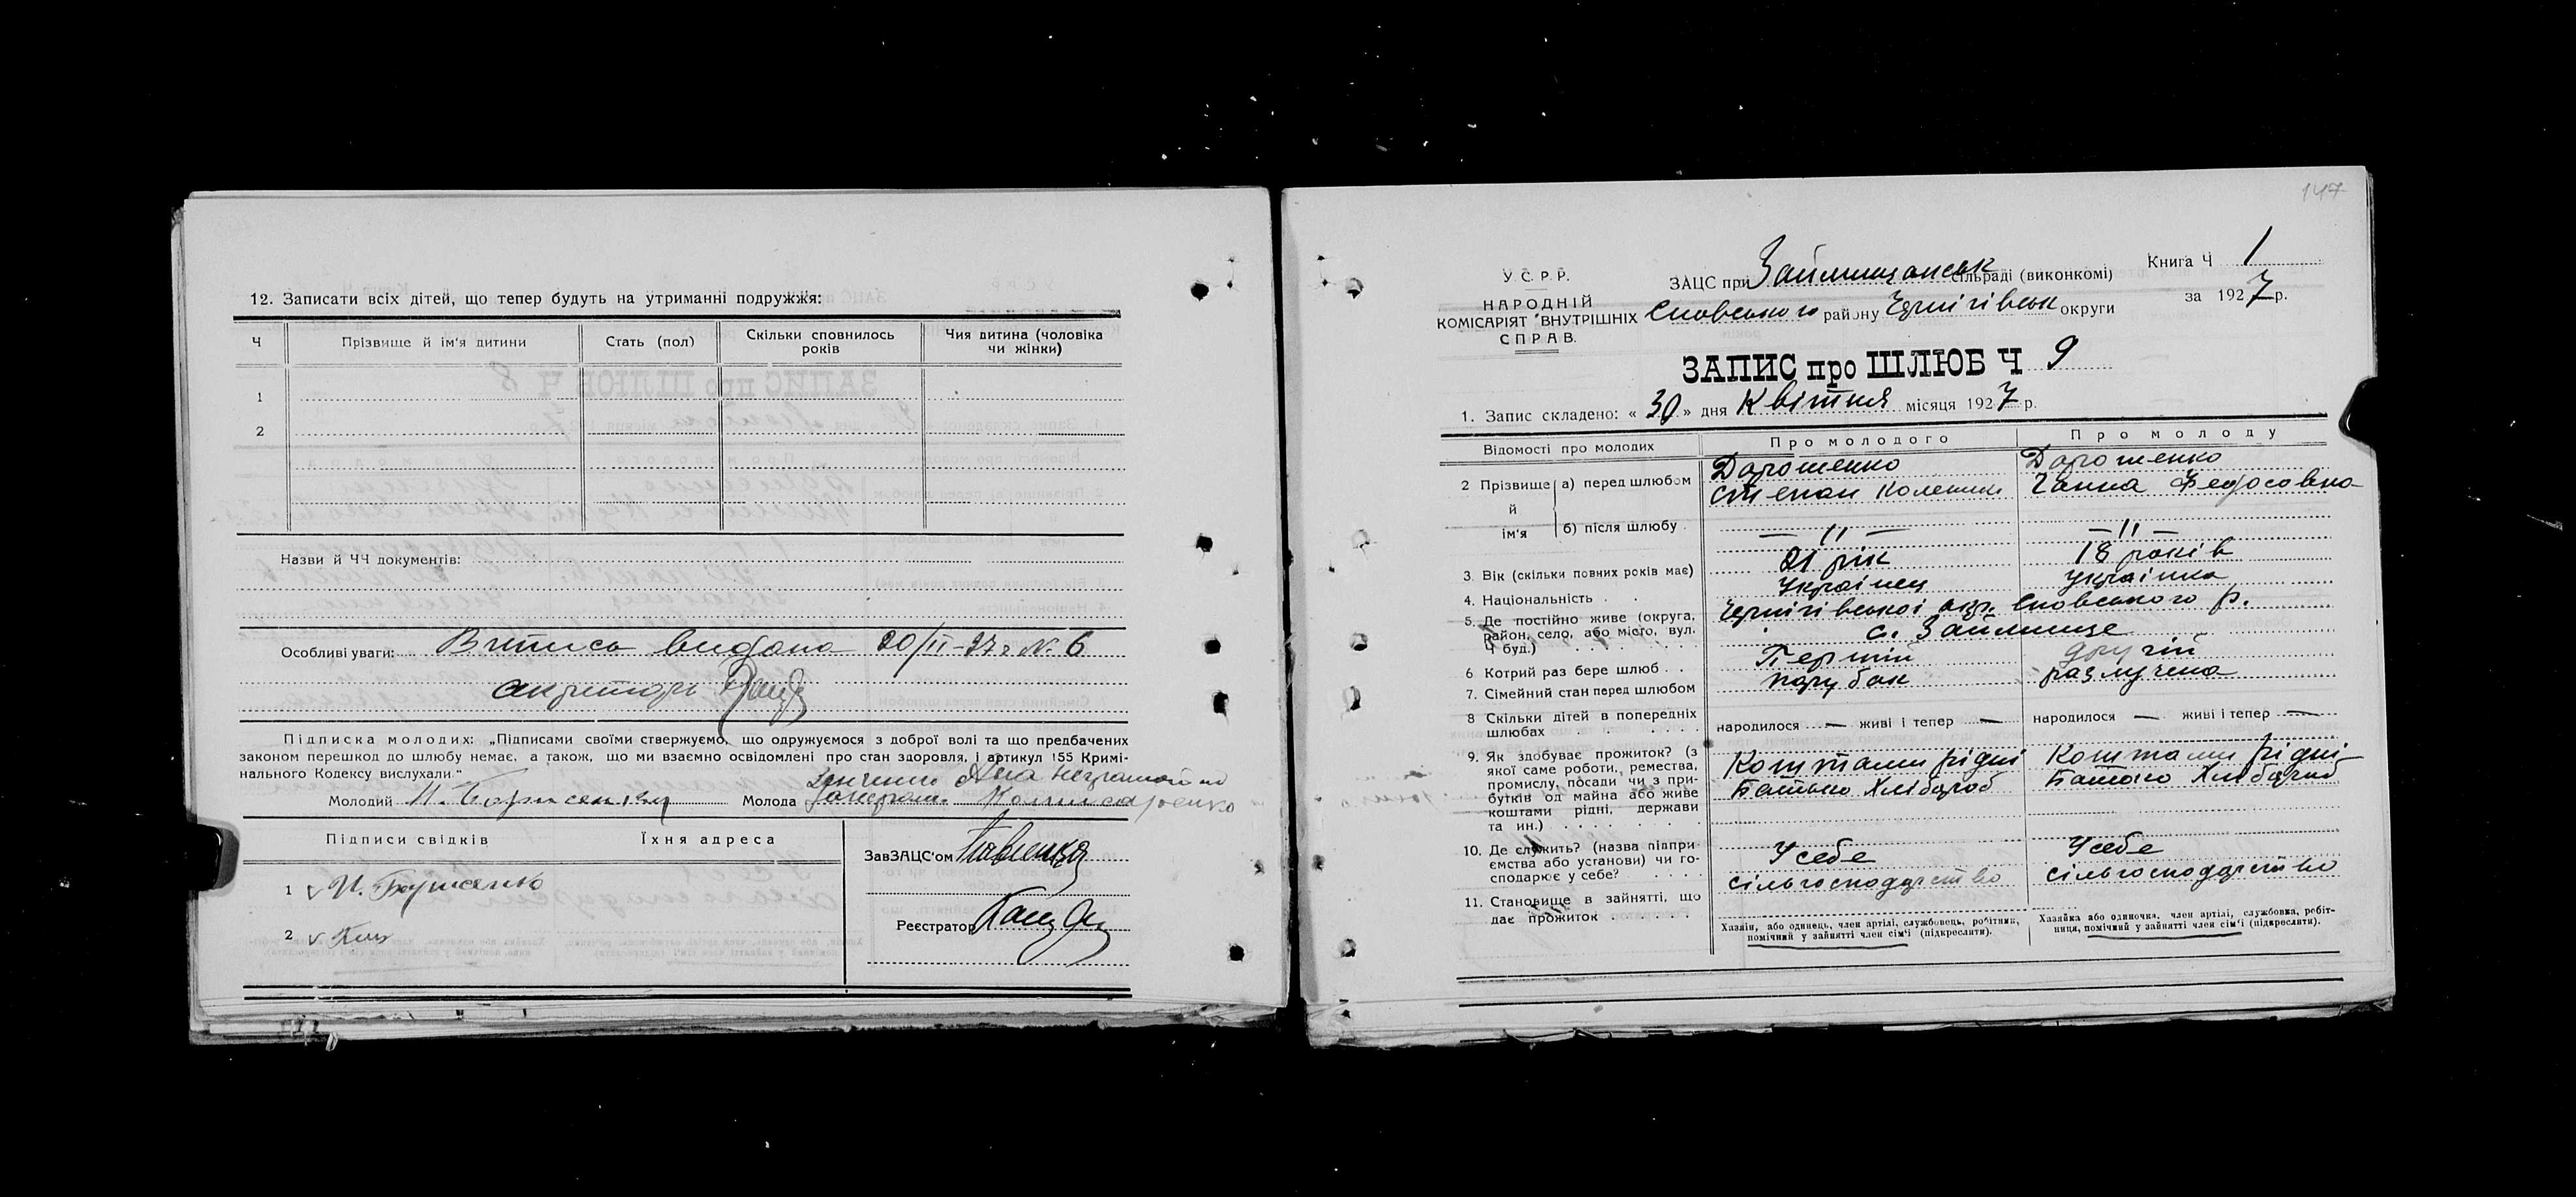 12. Записати всіх дітей, що тепер будуть на утриманні подружжя:
Ч Прізвище й ім'я дитини Стать (пол) Скільки сповнилось років Чия дитина (чоловіка чи жінки)
1
2
Назви й ЧЧ документів:
Особливі уваги: Витись видано 20/II-27 г № 6
Підписка молодих: „Підписами своїми стверджуємо, що одружуємося з доброї волі та що предбачених
законом перешкод до шлюбу немає, а також, що ми взаємно освідомлені про стан здоров'я, і артикул 155 Кримі-
нального Кодексу вислухали."
Молодий Молода
Підписи свідків Їхня адреса
ЗавЗАЦС'ом
1
Реєстратор
2
147
У.С.Р.Р.
НАРОДНІЙ
КОМІСАРІЯТ ВНУТРІШНІХ
СПРАВ.
ЗАЦС при Займищанськ сільраді (виконкомі)
Сновського району Чернігівськ округи
Книга Ч 1
за 1927 р.
ЗАПИС про ШЛЮБ Ч 9
1. Запис складено: « 30 » дня Квітня місяця 1927 р.
Відомості про молодих Про молодого Про молоду
2 Прізвище й ім'я а) перед шлюбом Дорошенко Дорошенко
Степан Ганна Федосовна
б) після шлюбу — 11 — — 11 —
3. Вік (скільки повних років має) 21 рік 18 років
4. Національність Українец Українка
5. Де постійно живе (округа, район, село, або місто, вул. Ч буд.) Чернігівської окр. Сновського р.
с. Займище
6 Котрий раз бере шлюб Перший другій
7. Сімейний стан перед шлюбом парубок разлучена
8 Скільки дітей в попередніх шлюбах народилося — живі і тепер — народилося — живі і тепер —
9. Як здобуває прожиток? (з якої саме роботи, ремества, промислу, посади чи з прибутків од майна або живе коштами рідні, держави та ин.) Коштами рідні Коштами рідні
Батько Хлібороб Батько Хлібороб
10. Де служить? (назва підприємства або установи) чи господарює у себе? У себе У себе
сільгосподарство сільгосподарство
11. Становище в зайнятті, що дає прожиток
Хазяїн, або одинець, член артілі, службовець, робітник, помічний у зайнятті член сім'ї (підкреслити).
Хазяйка або одиночка, член артілі, службовка, робітниця, помічний у зайнятті член сім'ї (підкреслити).